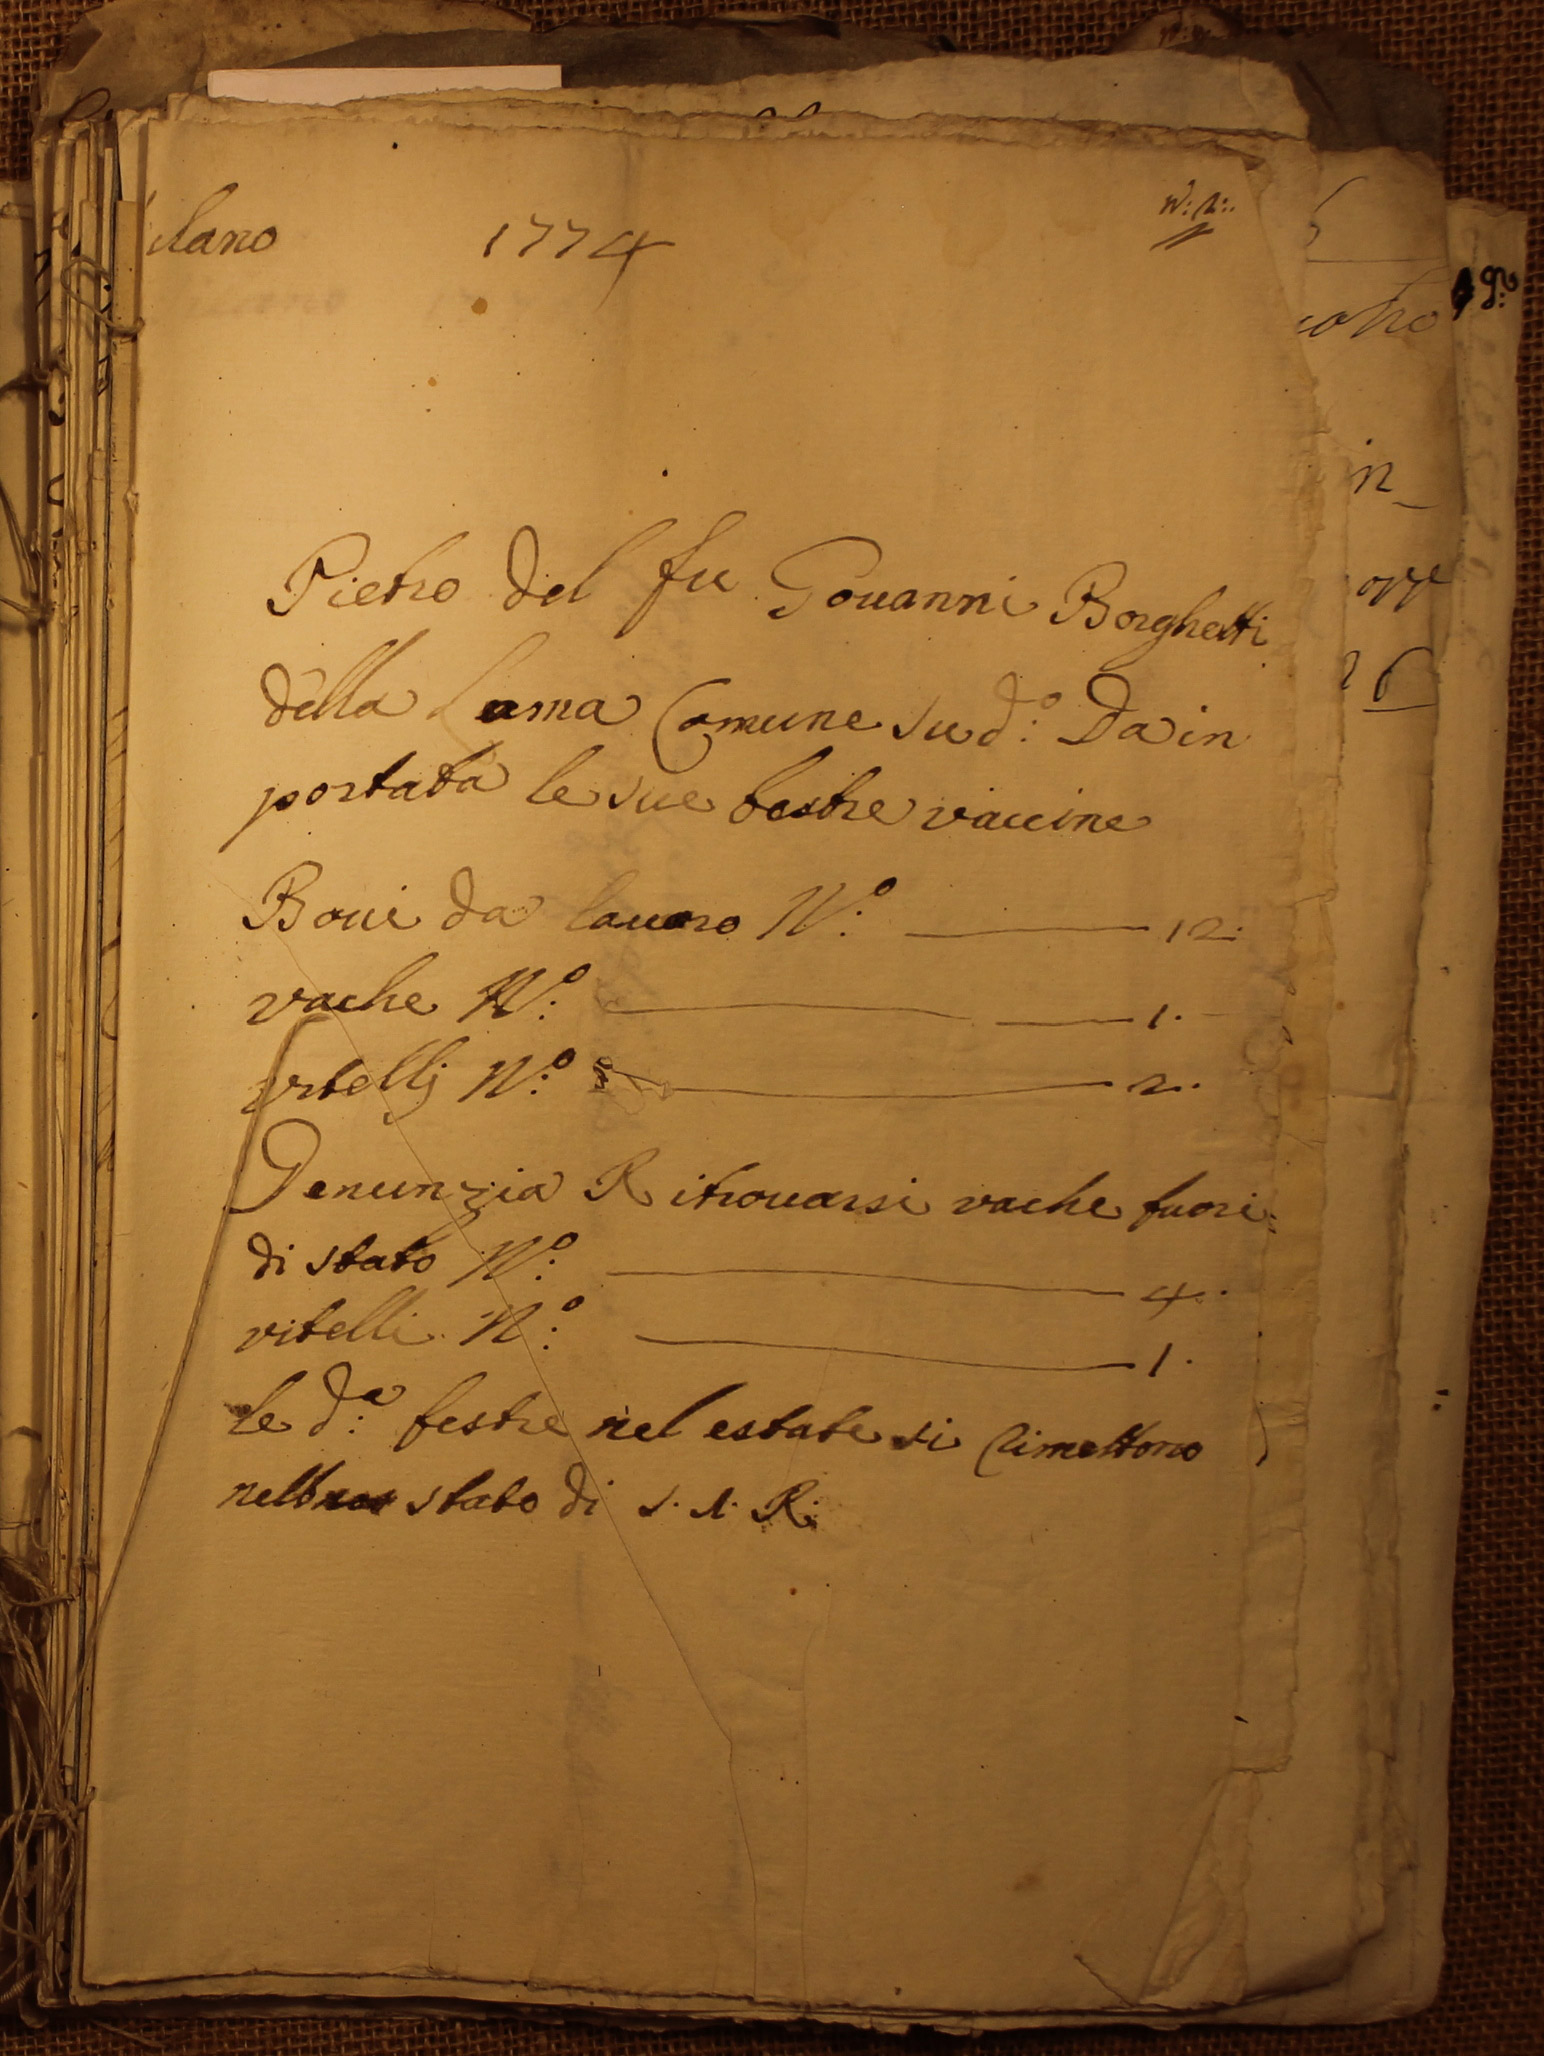 lano 1774
Pietro del fu Gouanni Borghetti
della Lama Comune sud.º Da in
portata le sue bestie vaccine
Boui da lauoro N.º 12.
vache N.º 1.
vitellj N.º 2.
Denunzia Ritrouarsi vache fuori
di stato N.º 4.
vitelli N.º 1.
le d.ª bestie nel estate si rimettono
stato di S. A. R.